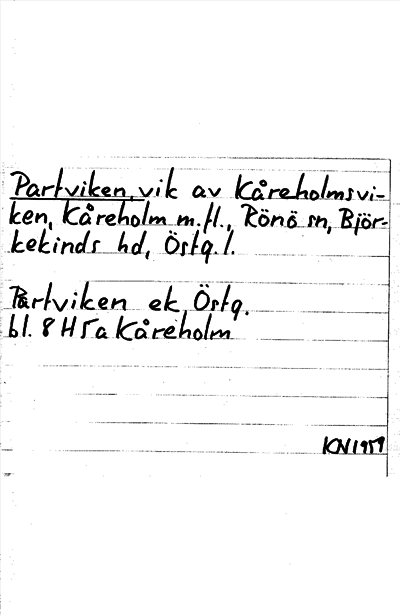 Partviken, vik av Kåreholmsvi-
ken, Kåreholm m.fl., Rönö sn, Björ-
kekinds hd, Östg. l.
Partviken ek, Östg.
bl. 8 H 5a Kåreholm
KN 1959